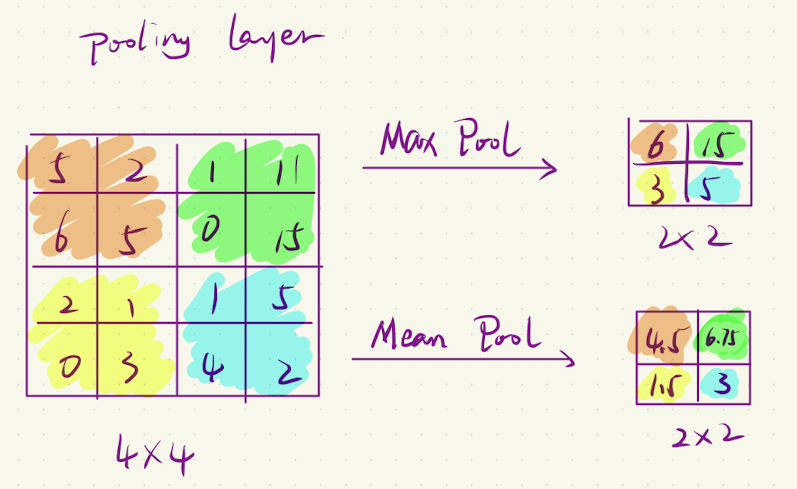 Pooling Layer
5 2 1 11
6 5 0 15
2 1 1 5
0 3 4 2
4x4
Max Pool
6 15
3 5
2x2
Mean Pool
4.5 6.75
1.5 3
2x2